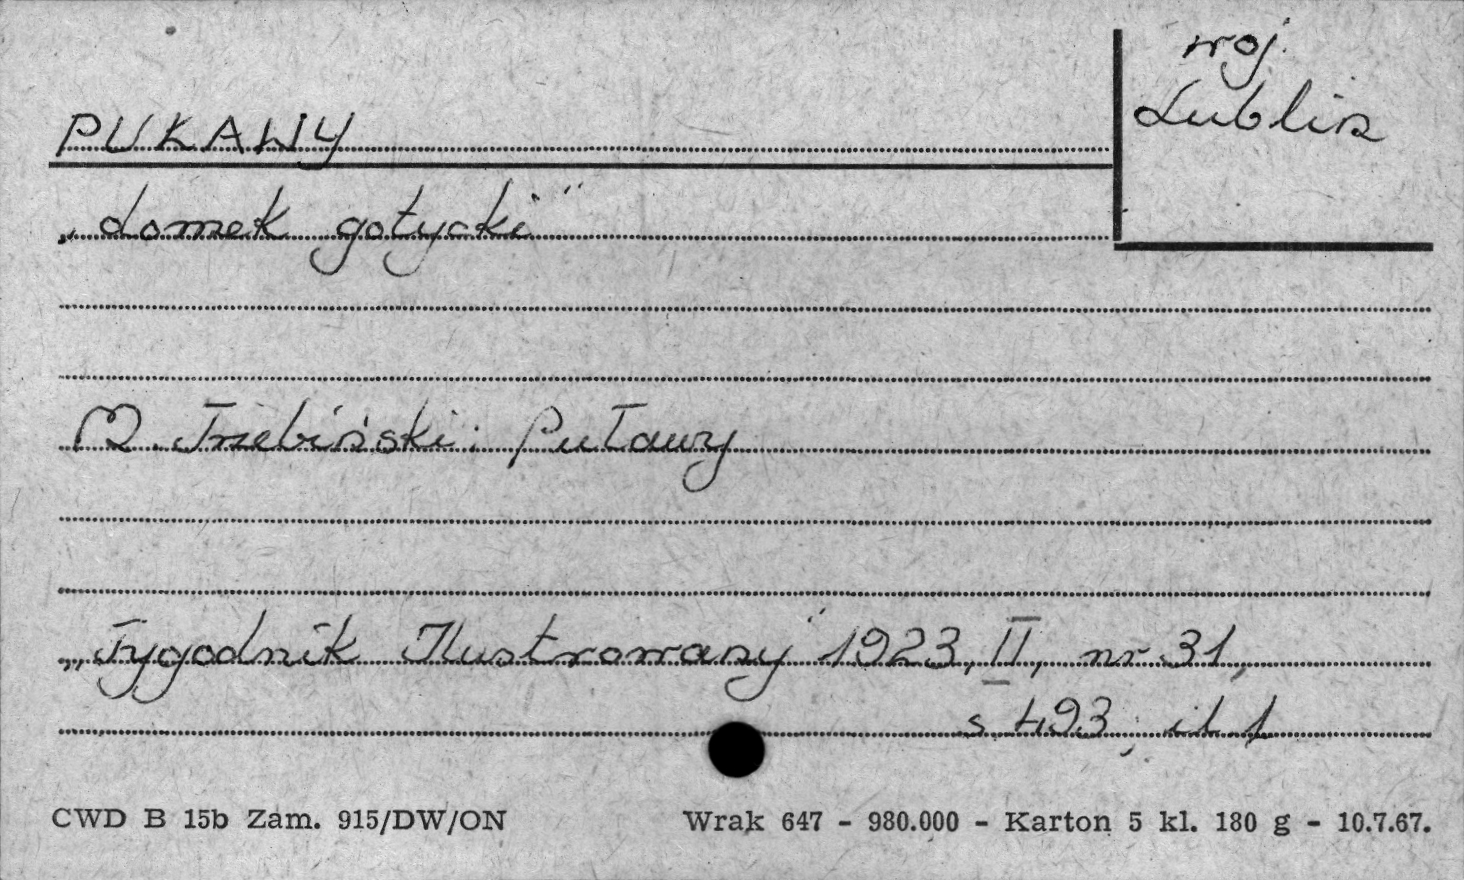 woj.
Lublin
PUŁAWY
„domek gotycki"
M. Trzebiński: Puławy
„Tygodnik Ilustrowany" 1923, II, nr 31,
s. 493, il. 1
CWD B 15b Zam. 915/DW/ON Wrak 647 - 980.000 - Karton 5 kl. 180 g - 10.7.67.